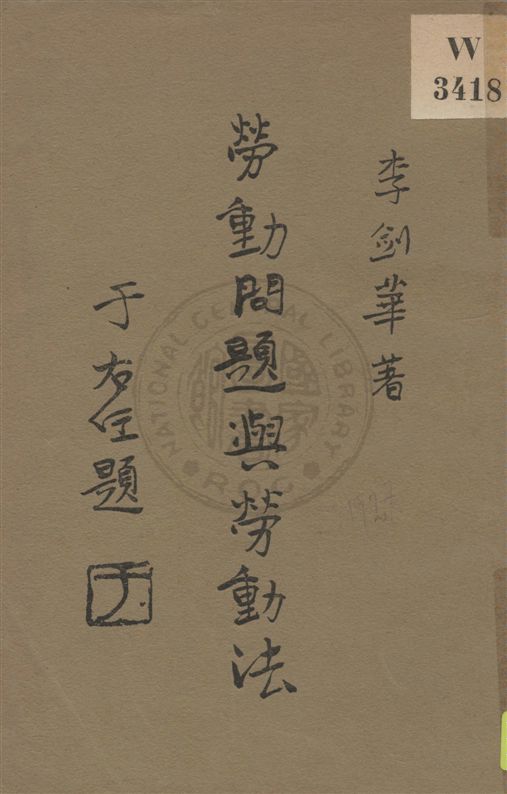 W
3418
李劍華著
勞動問題與勞動法
于右任題
于
NATIONAL CENTRAL LIBRARY
R.O.C